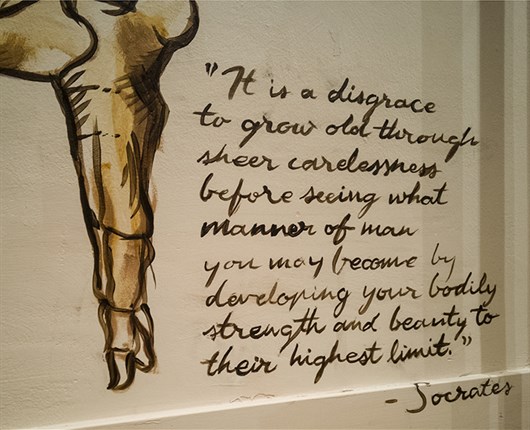 "It is a disgrace
to grow old through
sheer carelessness
before seeing what
manner of man
you may become by
developing your bodily
strength and beauty to
their highest limit."
- Socrates